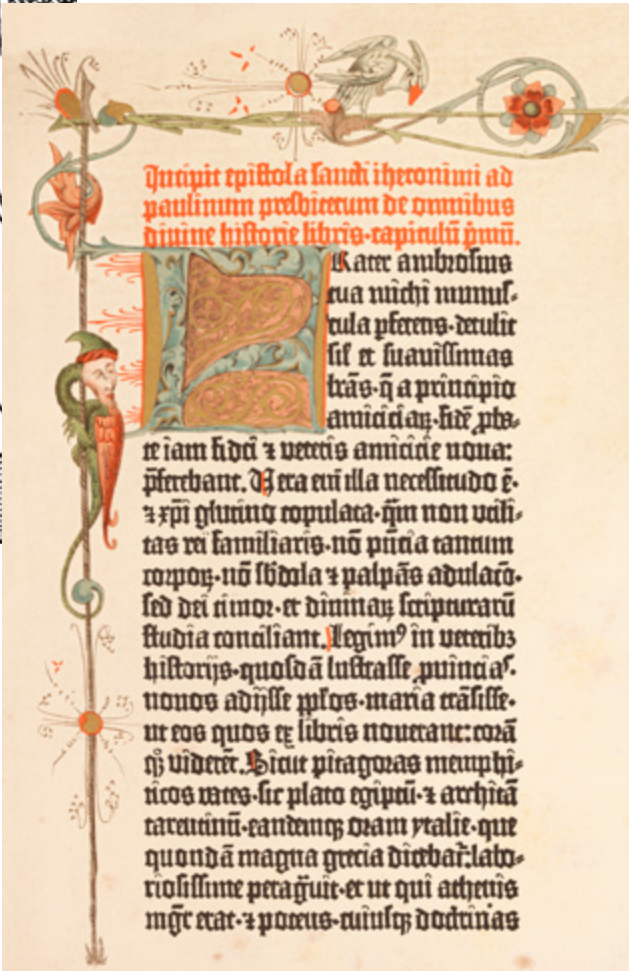 Incipit epistola sancti iheronimi ad
paulinum presbiterum de omnibus
divine historie libris·capitulū pͥmū.
Frater ambrosius
tua michi munus-
cula pferens·detulit
sil̄ et suavissimas
lrās·q̄ a principio
amiciciaꝝ·fidē ꝓba-
te iam fidei ⁊ veteris amicicie nova:
p̄ferebant. Vera eni̅ illa necessitudo ē·
⁊ xp̄i glutino copulata·qm̄ non utili-
tas rei familiaris·nō pn̄cia tantum
corpoꝝ·nō sb̄dola ⁊ palpās adulacō·
sed dei timor·et divinaꝝ scripturarū
studia conciliant. Legimꝰ in veteribꝫ
historijs·quosdā lustrasse ꝓvincias·
novos adijsse pp̄los·maria trāsisse·
ut eos quos ex libris noverant: corā
qꝫ viderēt. Sicut pitagoras memphi-
ticos vates·sic plato egiptū·⁊ architā
tarentinū·eandemqꝫ oram ytalie·que
quondā magna grecia dicebat̄: labo-
riosissime peragͣvit·et ut qui athenis
mgr̄ erat·⁊ potens·cuiusqꝫ doctrinas